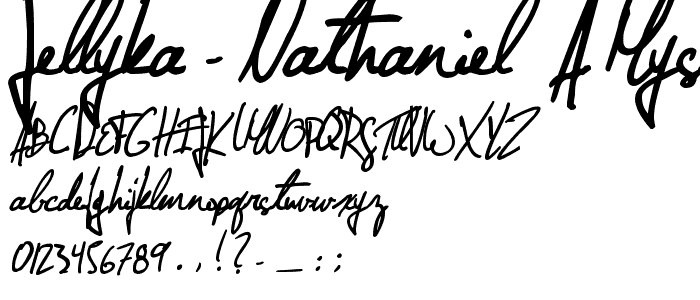 Jellyka - Nathaniel A Mys
ABCDEFGHIJKLMNOPQRSTUVWXYZ
abcdefghijklmnopqrstuvwxyz
0123456789 . , ! ? - _ : ;